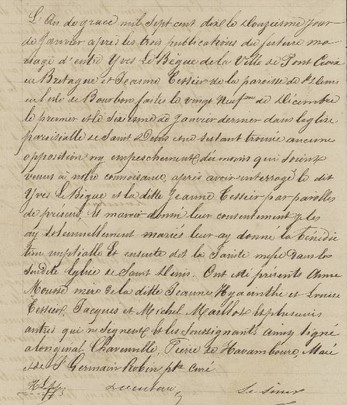 L'An de grace mil sept cent dix le douziesme Jour
de Janvier après les trois publications de future ma
riage d'entre Yves Le Bègue de la Ville de Pont Croix
en Bretagne et Jeanne Tessier de la paroisse de St Denis
en l'isle de Bourbon faites le vingt Neufme de décembre
le premier et le Sixieme de Janvier dernier dans l'eglise
paroissiale de Saint Denis et ne s'estant trouvé aucune
opposition ny empeschement du moins qui soient
venus à notre connoissance, après avoir interrogé le dit
Yves Le Bègue et la ditte Jeanne Tessier par paroles
de présent, Et m'avoir donné leur consentement je les
ay solennellement mariés leur ay donné la bénédic
tion nuptialle et ensuite dit la Sainte messe dans la
susdite Eglise de Saint Denis. Ont été présents Anne
Mousse mere de la ditte Jeanne Hyacinthe et Louise
Tessier, Jacques et Michel Maillot et plusieurs
autres qui ne signent et les Soussignants ainsy signé
a l'original Chareuville, Pierre de Havamboure, Marié
et de St Germain Robin ptre Curé